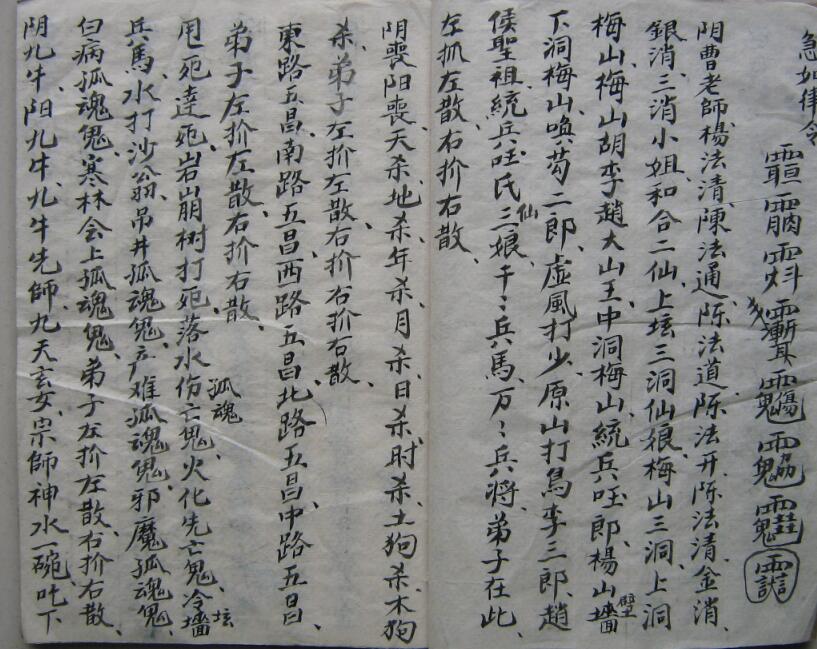 急如律令
阴曹老師楊法清、陳法通、陈法道、陈法开、陈法清、金消、
銀消、三消小姐、和合二仙、上坛三洞仙娘、梅山三洞、上洞
梅山、梅山胡李趙大山王、中洞梅山、統兵吐郎、楊山壁墻、
下洞梅山、喚葛二郎、虚風打少、原山打鳥李三郎、趙
侯聖祖、統兵吐氏三仙娘、千〻兵馬、万〻兵將、弟子在此、
左扒左散、右扴右散、
阴喪阳喪、天杀地杀、年杀月杀日杀时杀、土狗杀木狗
杀、弟子左扴左散、右扴右散、
東路五昌、南路五昌、西路五昌、北路五昌、中路五昌、
弟子左扴左散、右扴右散、
甩死達死、岩崩树打死、落水伤亡孤魂鬼、火化先亡鬼、冷坛墻
兵馬、水打沙翁、吊井孤魂鬼、产难孤魂鬼、邪魔孤魂鬼、
白病孤魂鬼、寒林会上孤魂鬼、弟子左扴左散、右扴右散、
阴九牛、阳九牛、九牛先師、九天玄女、宗師神水一碗、吐下